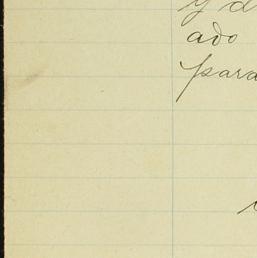 y d
ado
para